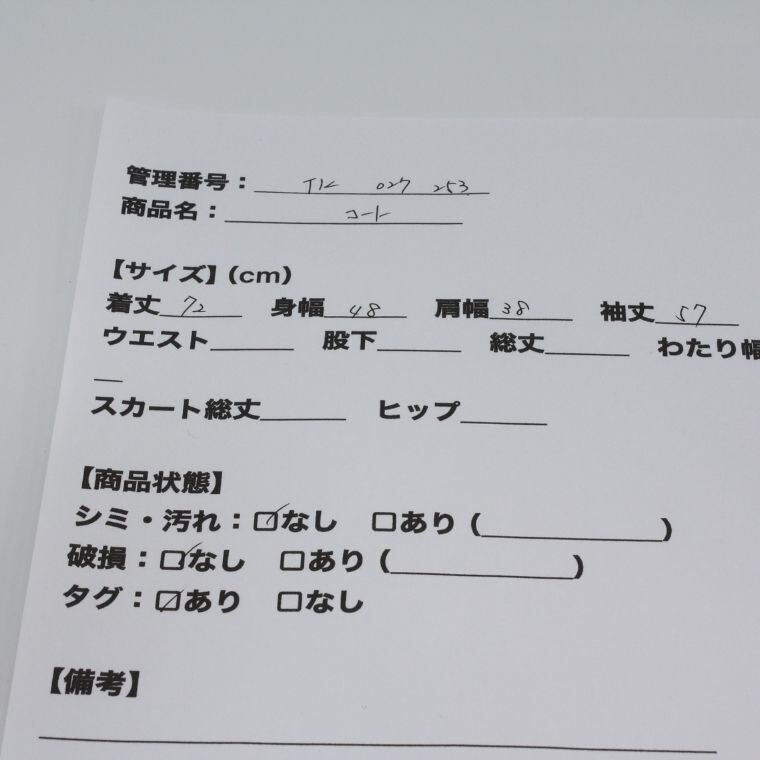 管理番号：TK 027 253
商品名：コート
【サイズ】(cm)
着丈 72 身幅 48 肩幅 38 袖丈 57
ウエスト 股下 総丈 わたり幅
スカート総丈 ヒップ
【商品状態】
シミ・汚れ：☑なし □あり ( )
破損：☑なし □あり ( )
タグ：☑あり □なし
【備考】